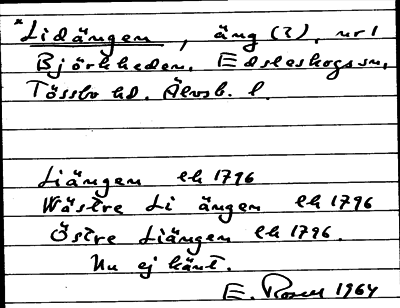 *Lidängen, äng (3), nr 1
Björkheden. Edsleskogs sn,
Tössbo hd. Älvsb. l.
Liängen lh 1796
Wästre Li ängen lh 1796
Östre Liängen lh 1796.
Nu ej känt.
E. Rosell 1964